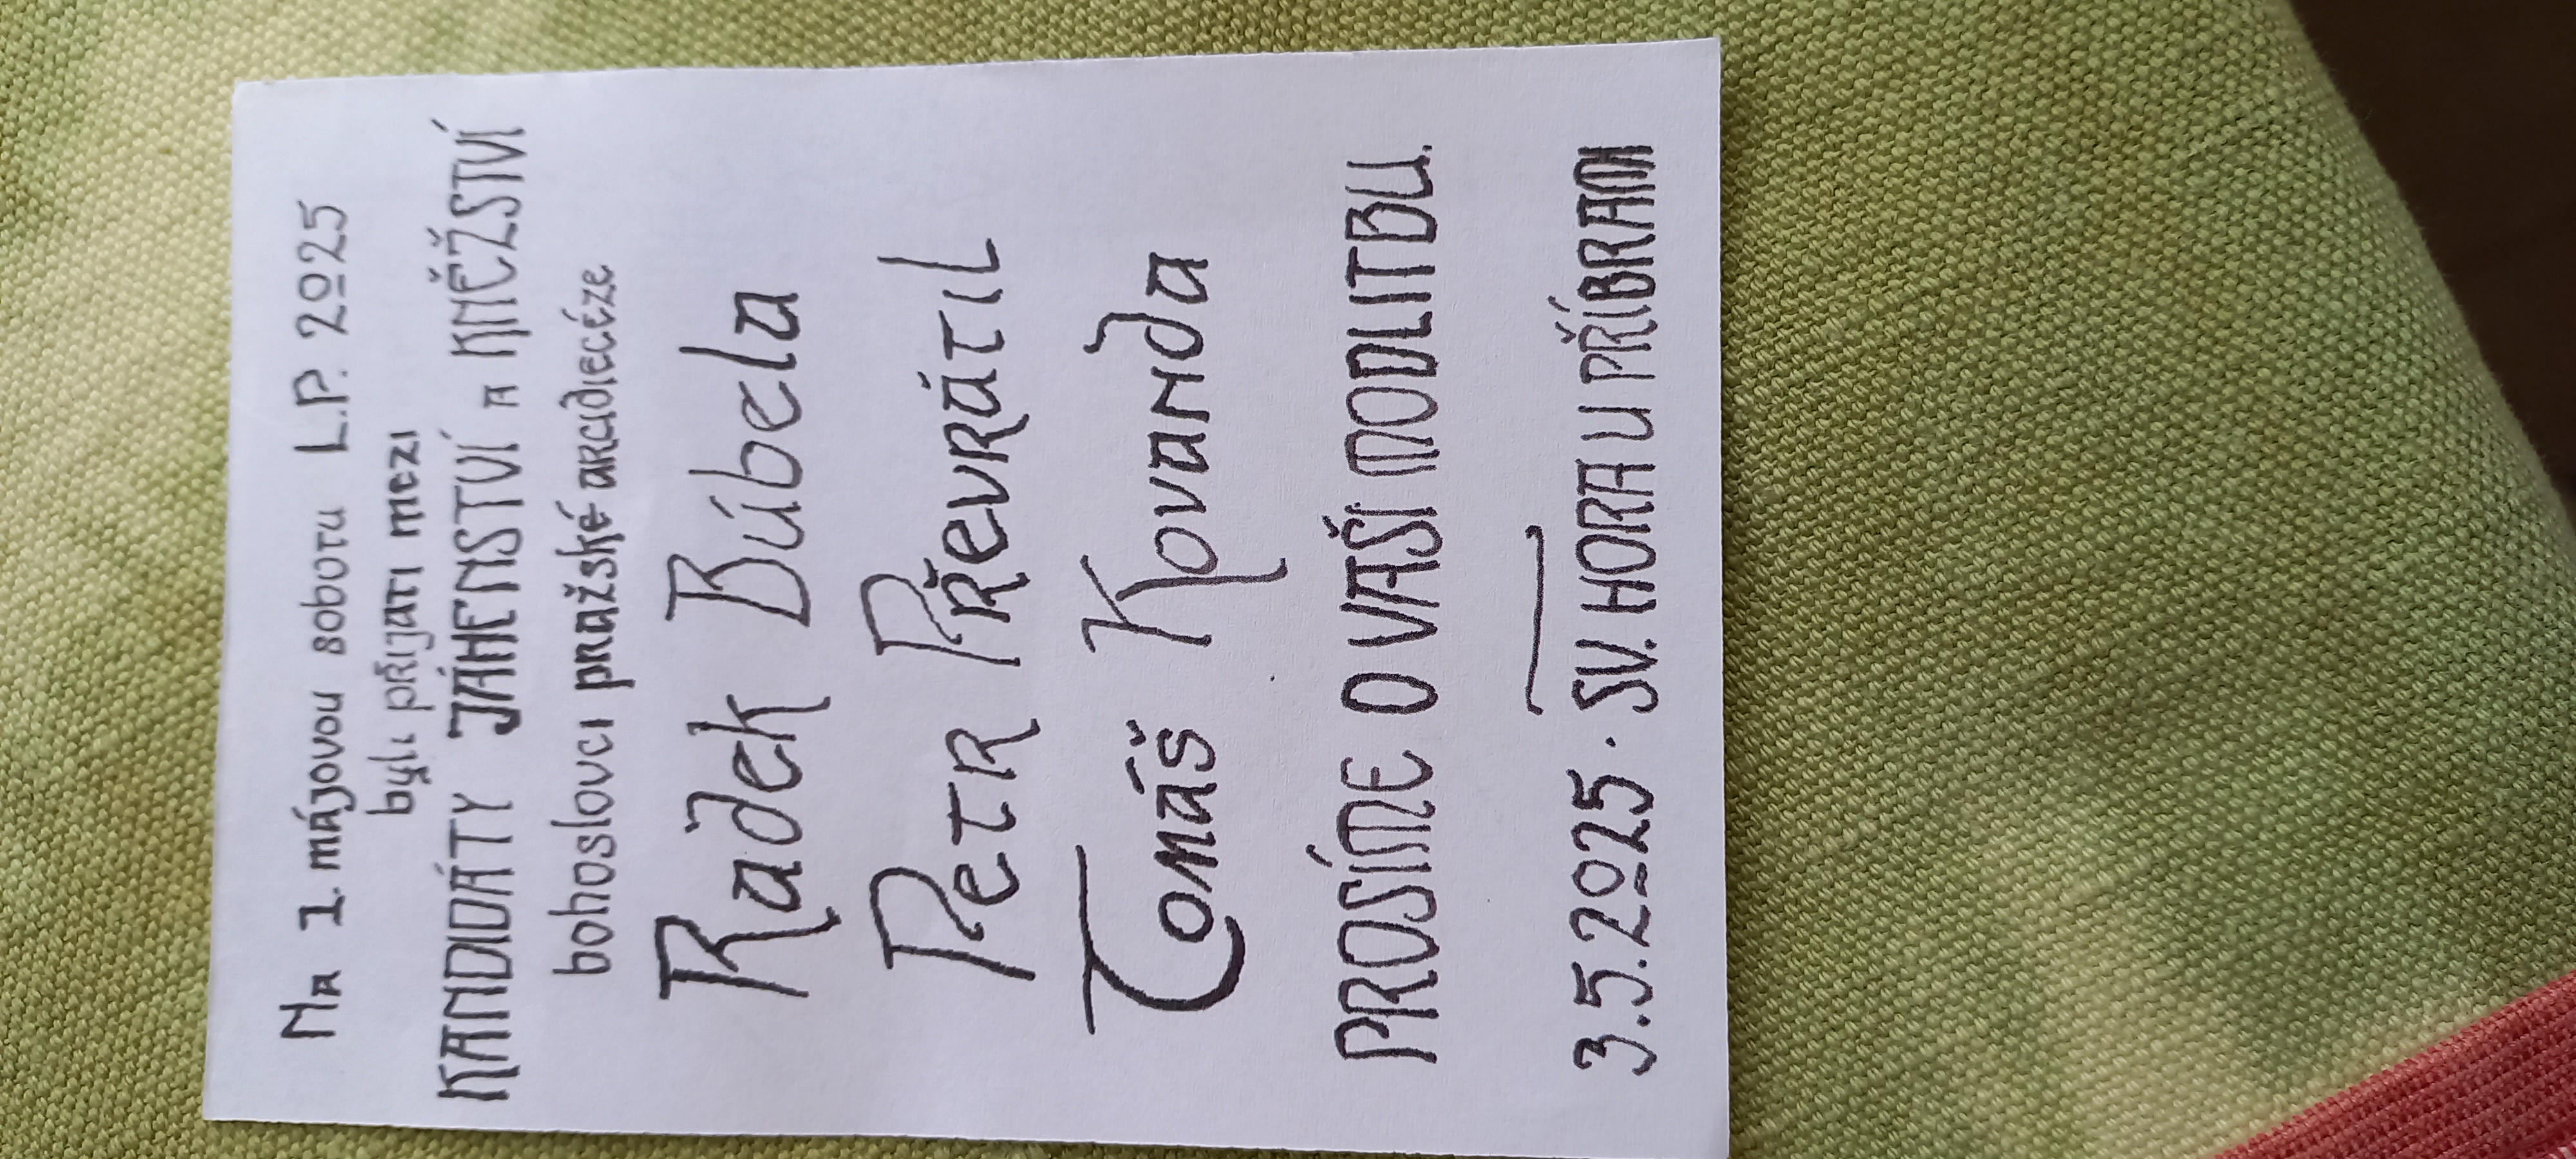 Na 1. májovou sobotu L.P. 2025
byli přijati mezi
KANDIDÁTY JÁHENSTVÍ A KNĚŽSTVÍ
bohoslovci pražské arcidiecéze
Radek Búbela
Petr Převrátil
Tomáš Kovanda
PROSÍME O VAŠI MODLITBU.
3.5.2025 · SV. HORA U PŘÍBRAMI